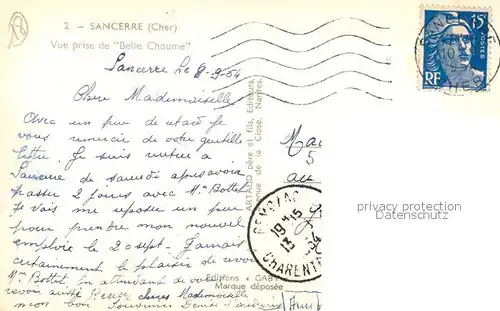 2. — SANCERRE (Cher)
Vue prise de "Belle Chaume"
Sancerre le 8-9-54
Chère Mademoiselle
Avec un peu de retard je
vous remercie de votre gentille
lettre. Je suis rentrée a
Sancerre de samedi après avoir
passer 2 jours avec Mme Bottet
Je vais me reposer un peu
pour prendre mon nouvel
emploie le 20 sept. J'aurais
certainement le plaisir de voir
Mme Bottet. En attendant de vous
revoir aussi Recevez chère Mademoiselle
mon bon Souvenir
ARTAUD père et fils, Editeurs,
avenue de la Close, Nantes.
Editions "GABY"
Marque déposée
15F
POSTES
RF
19H15
13
CHARENTE
5
au
privacy protection
watermark